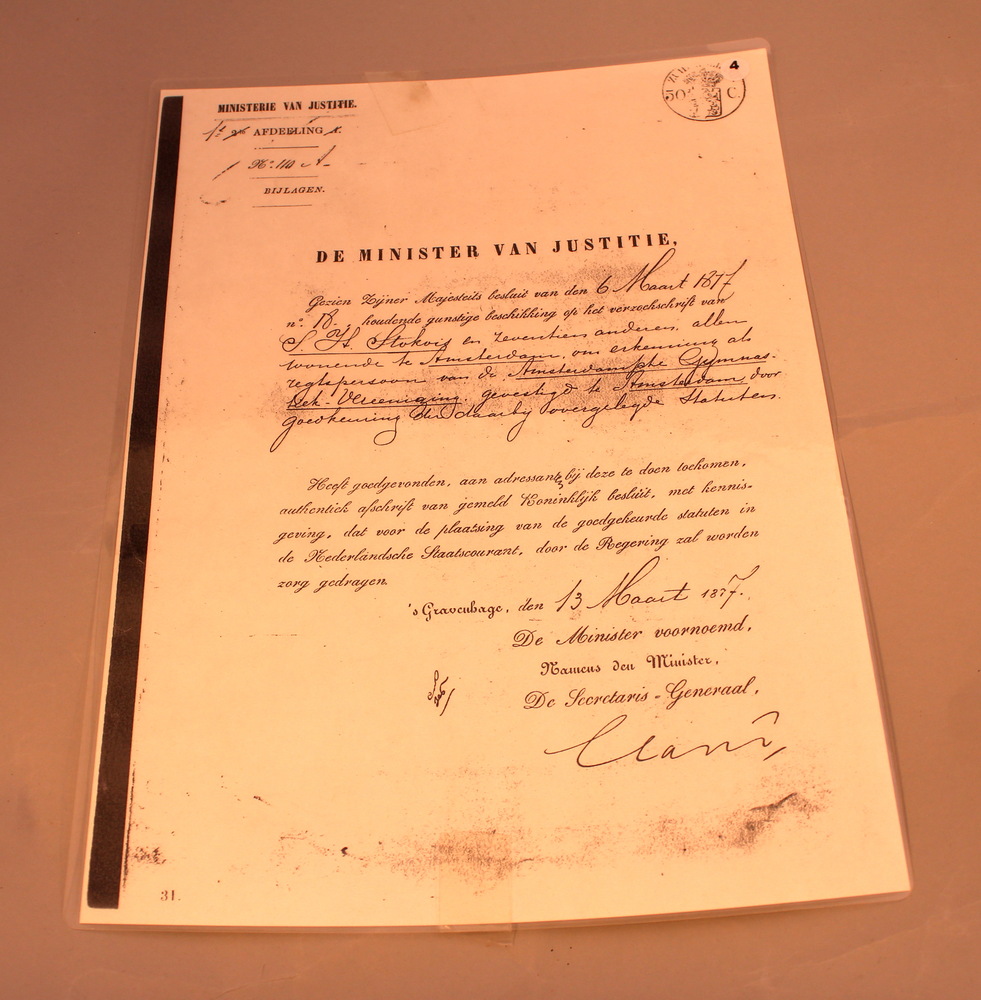 4
50 C.
MINISTERIE VAN JUSTITIE.
1e AFDEELING
No. 110 A
BIJLAGEN.
DE MINISTER VAN JUSTITIE,
Gezien Zijner Majesteits besluit van den 6 Maart 1877
no. 18, houdende gunstige beschikking op het verzoekschrift van
S. H. Stokvis en zeventien anderen, allen
wonende te Amsterdam, om erkenning als
regtspersoon van de Amsterdamsche Gymnas-
tiek-Vereeniging, gevestigd te Amsterdam, door
goedkeuring der daarby overgelegde Statuten.
Heeft goedgevonden, aan adressanten bij deze te doen toekomen,
authentiek afschrift van gemeld Koninklijk besluit, met kennis-
geving, dat voor de plaatsing van de goedgekeurde statuten in
de Nederlandsche Staatscourant, door de Regering zal worden
zorg gedragen.
's Gravenhage, den 13 Maart 1877.
De Minister voornoemd,
Namens den Minister,
De Secretaris-Generaal,
31.